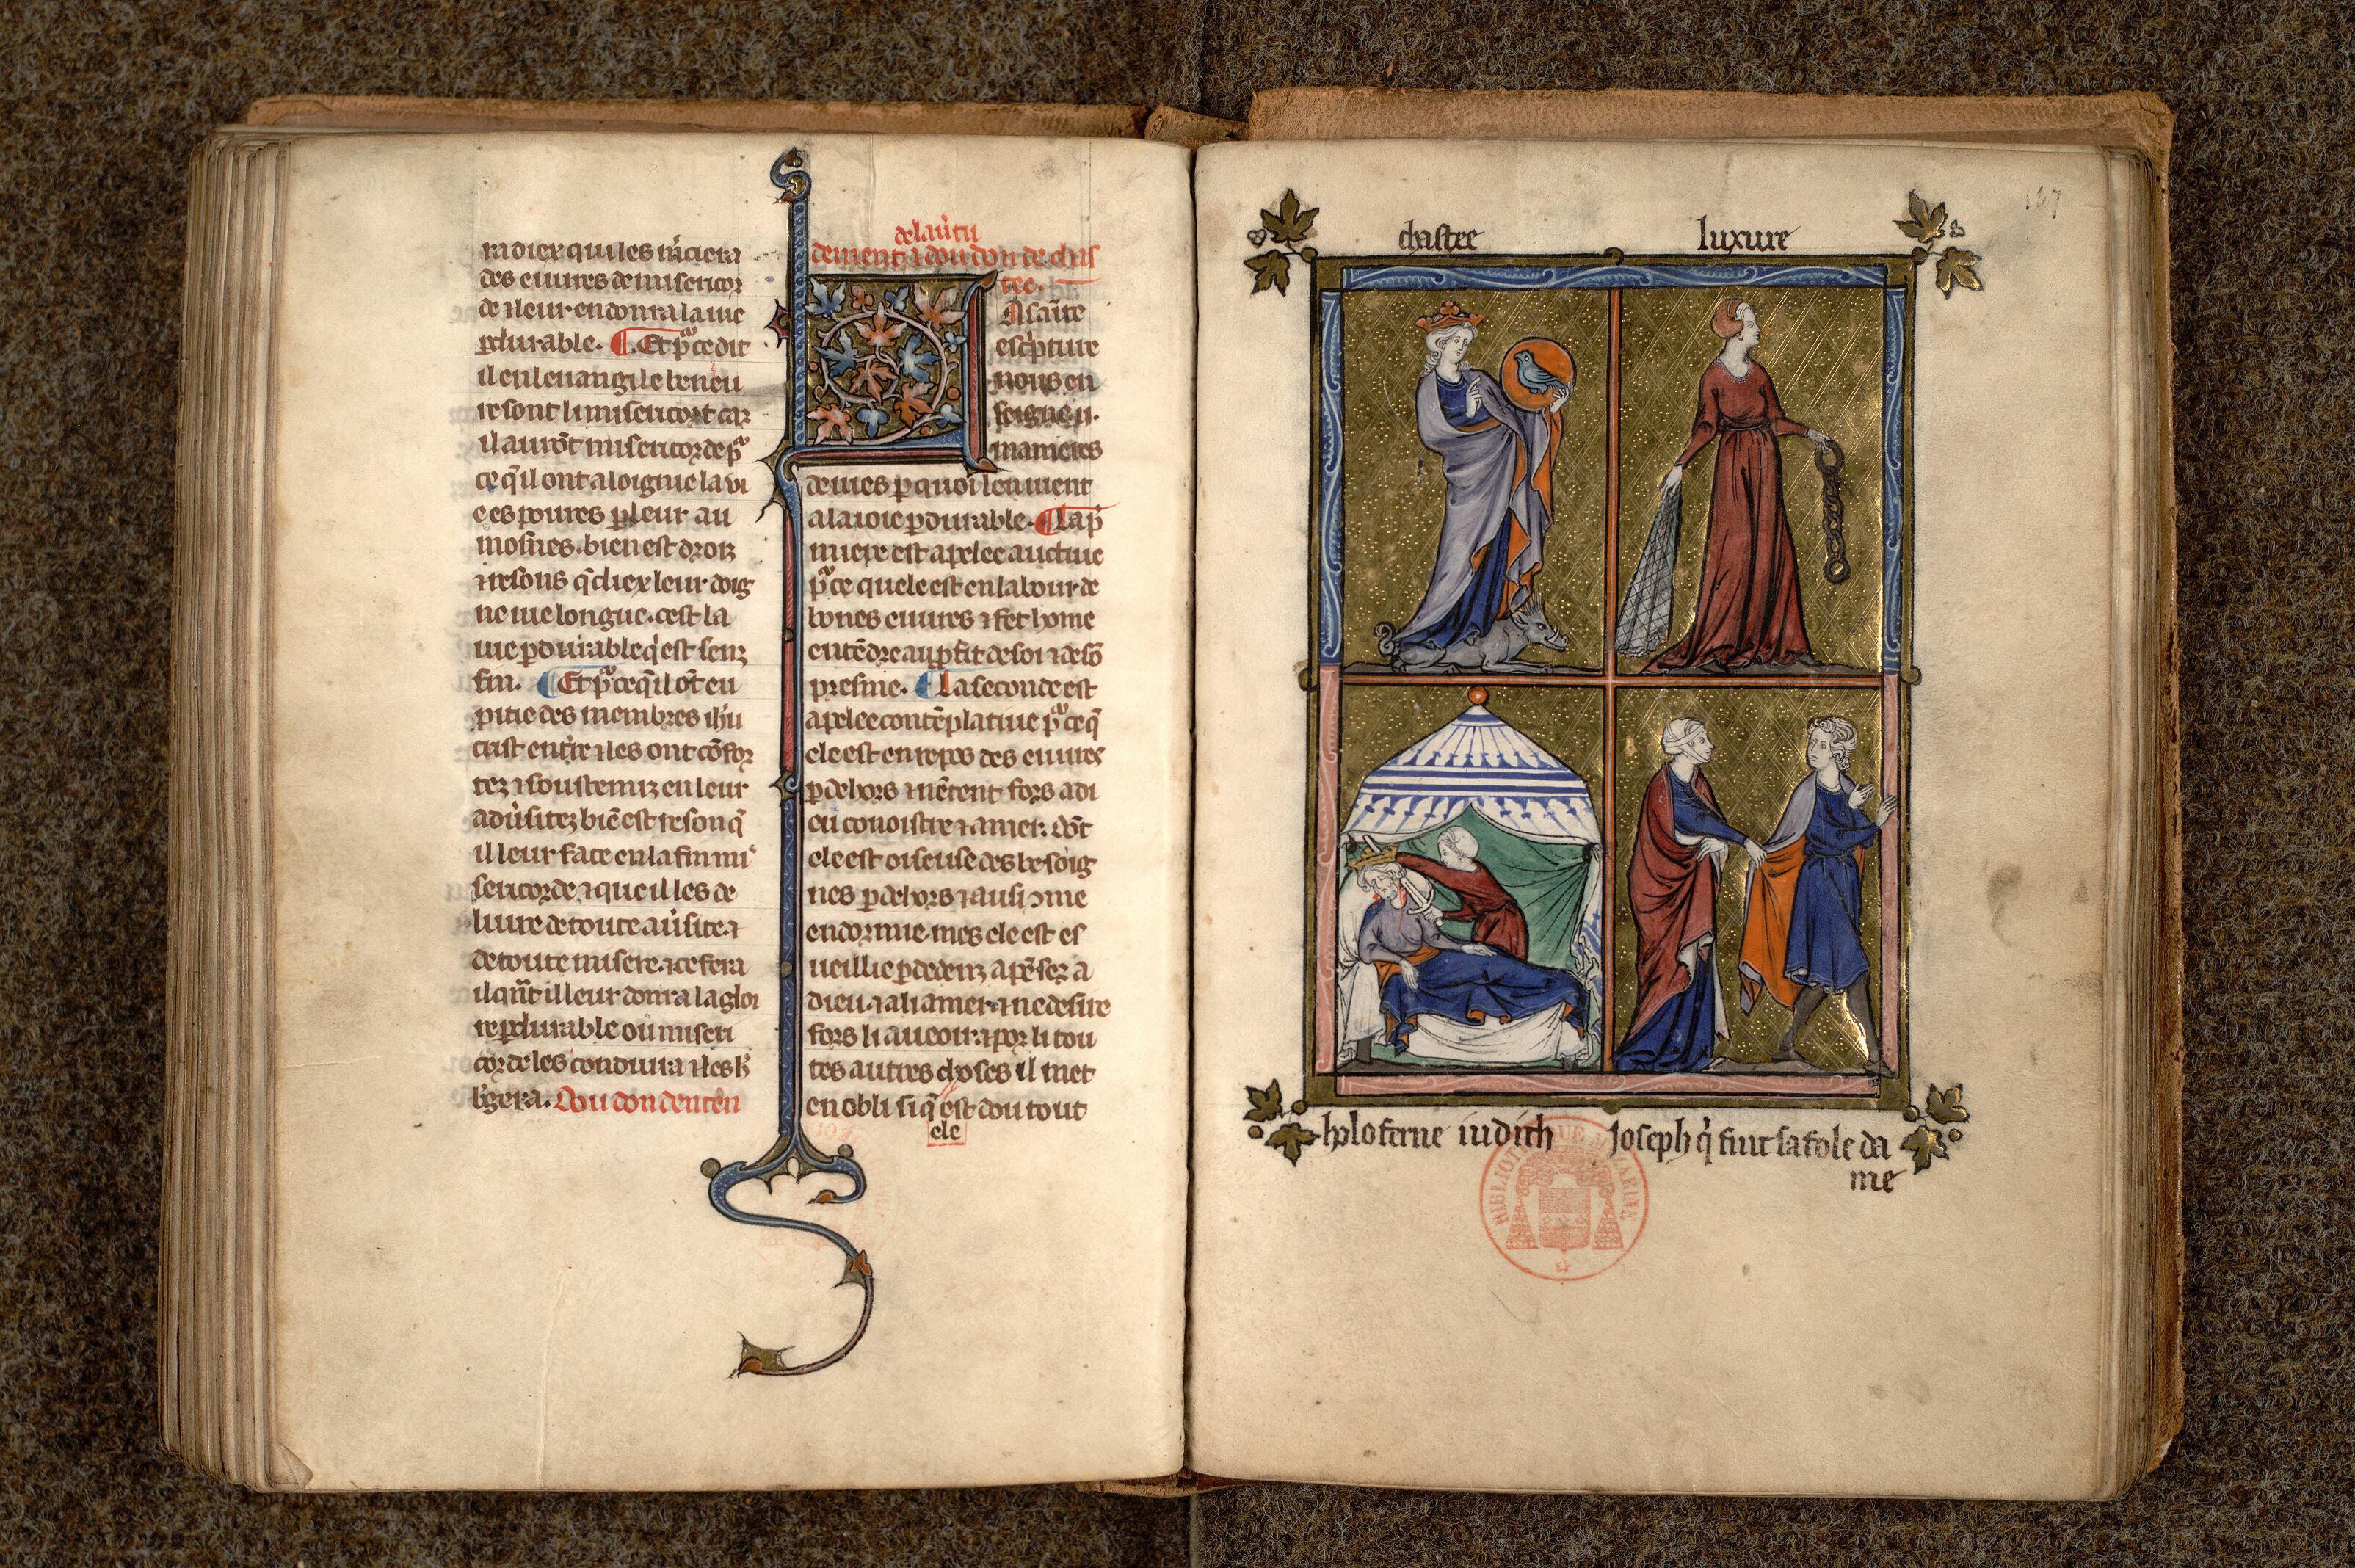 ra diex qui les m̾ciera
des euures de misericor
de ⁊ leur en donra la uie
ꝑdurable. ¶ Et pᵃ ce dit
il en leuangile beneu
re sont li misericort car
il aurōt misericorde pᵃ
ce q̃ il ont aloignie la vi
e es poures ꝑ leur au
mosnes. bien est droiz
⁊ resons q̃ diex leur doig
ne uie longue. cest la
uie ꝑdurable qͥ est senz
fin. ¶ Et pᵃ ce q̃ il ōt eu
pitie des membres ihu
crist en t̾re ⁊ les ont cōfor
tez ⁊ soustenuz en leur
adu̾sitez biē est reson q̃
il leur face en la fin mi
sericorde. ⁊ que il les de
liure de toute au̾site. ⁊
de toute misere. ⁊ ce fera
il qn̄t il leur donra la gloi
re ꝑdurable ou miseri
corde les conduira ⁊ les h̾
b̾gera. Dou don dentēn
de la u̾tu
dement ⁊ dou don de chas
tee.
A saīte
esc̾pture
nous en
seigne .ij.
manieres
de uies ꝑ quoi len uient
a la ioie ꝑdurable. ¶ La pͥ
miere est apelee auctiue
pᵃ ce quele est en labour de
bones euures ⁊ fet home
entēdre au ꝓfit de soi ⁊ de sō
presme. ¶ La seconde est
apelee contēplatiue pᵃ ce q̃
ele est en repos des euures
ꝑ dehors ⁊ nētent fors a di
eu conoistre ⁊ amer. dōt
ele est oiseuse des besoig
nes ꝑ dehors ⁊ ausi ꝯme
endormie. mes ele est es
ueillie ꝑ dedenz a pēsez a
dieu. ⁊ a li amer. ⁊ ne desire
fors li aueoir. ⁊ por li tou
tes autres choses il met
en obli si q̃ est dou tout
ele
167
chastee
luxure
holoferne iudith
Joseph qͥ fuit sa fole da
me
BIBLIOTHEQUE MAZARINE